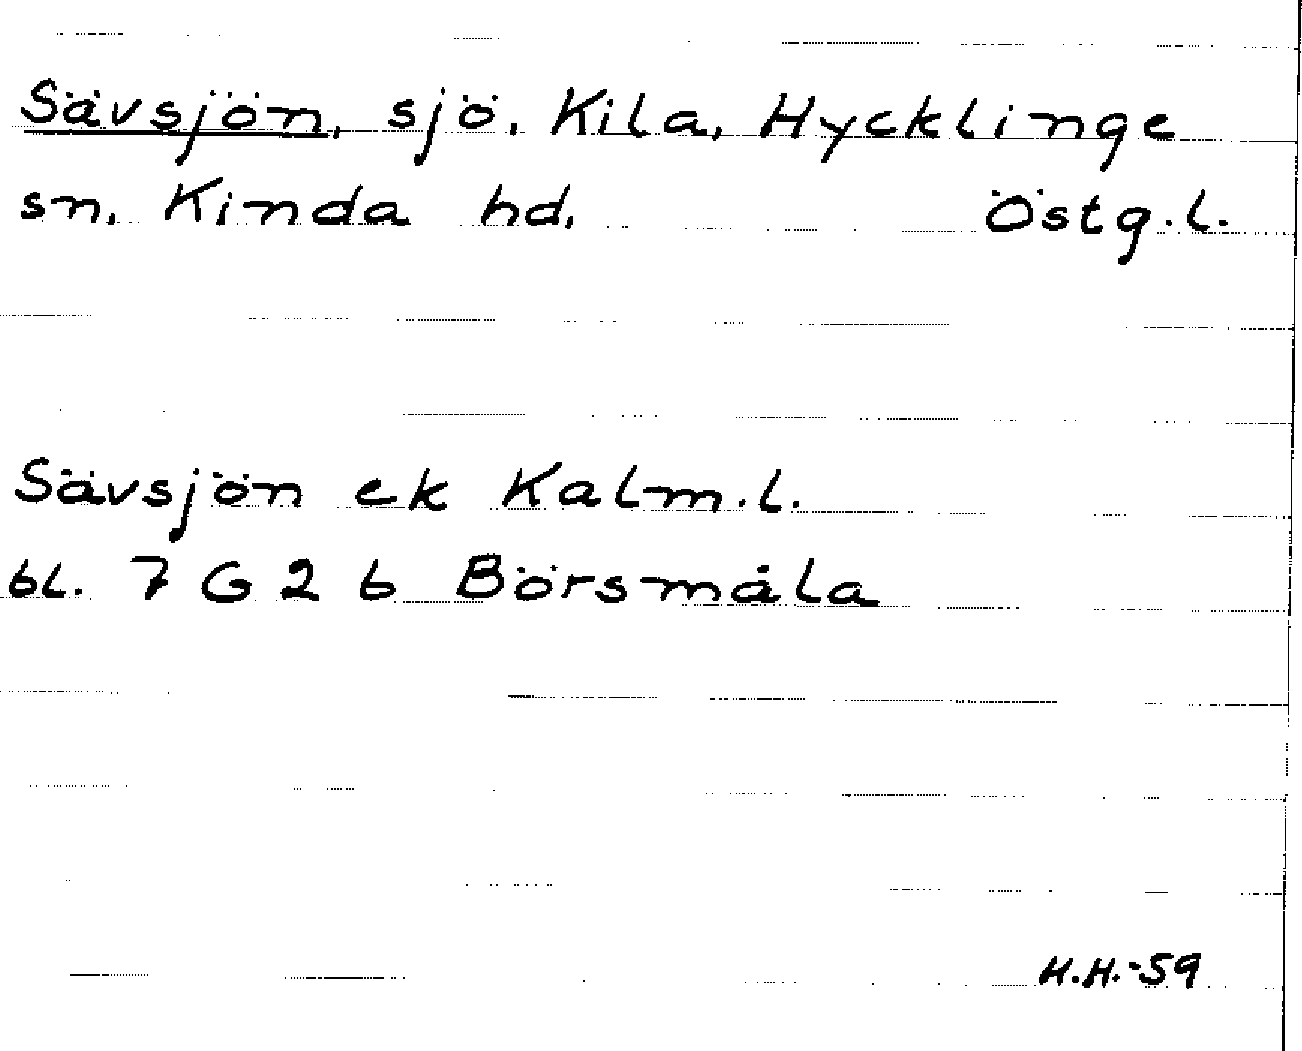 Sävsjön, sjö, Kila, Hycklinge
sn, Kinda hd, Östg.l.
Sävsjön ek Kalm.l.
bl. 7 G 2 b Börsmåla
H.H.-59